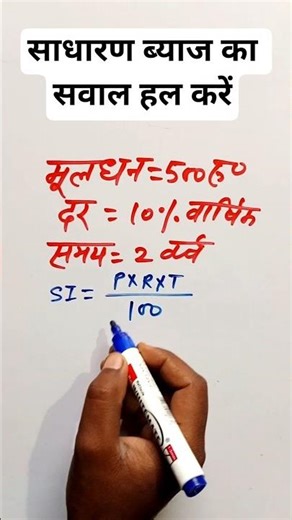 साधारण ब्याज का
सवाल हल करें
मूलधन = 500 रु०
दर = 10% वार्षिक
समय = 2 वर्ष
SI = P×R×T
100